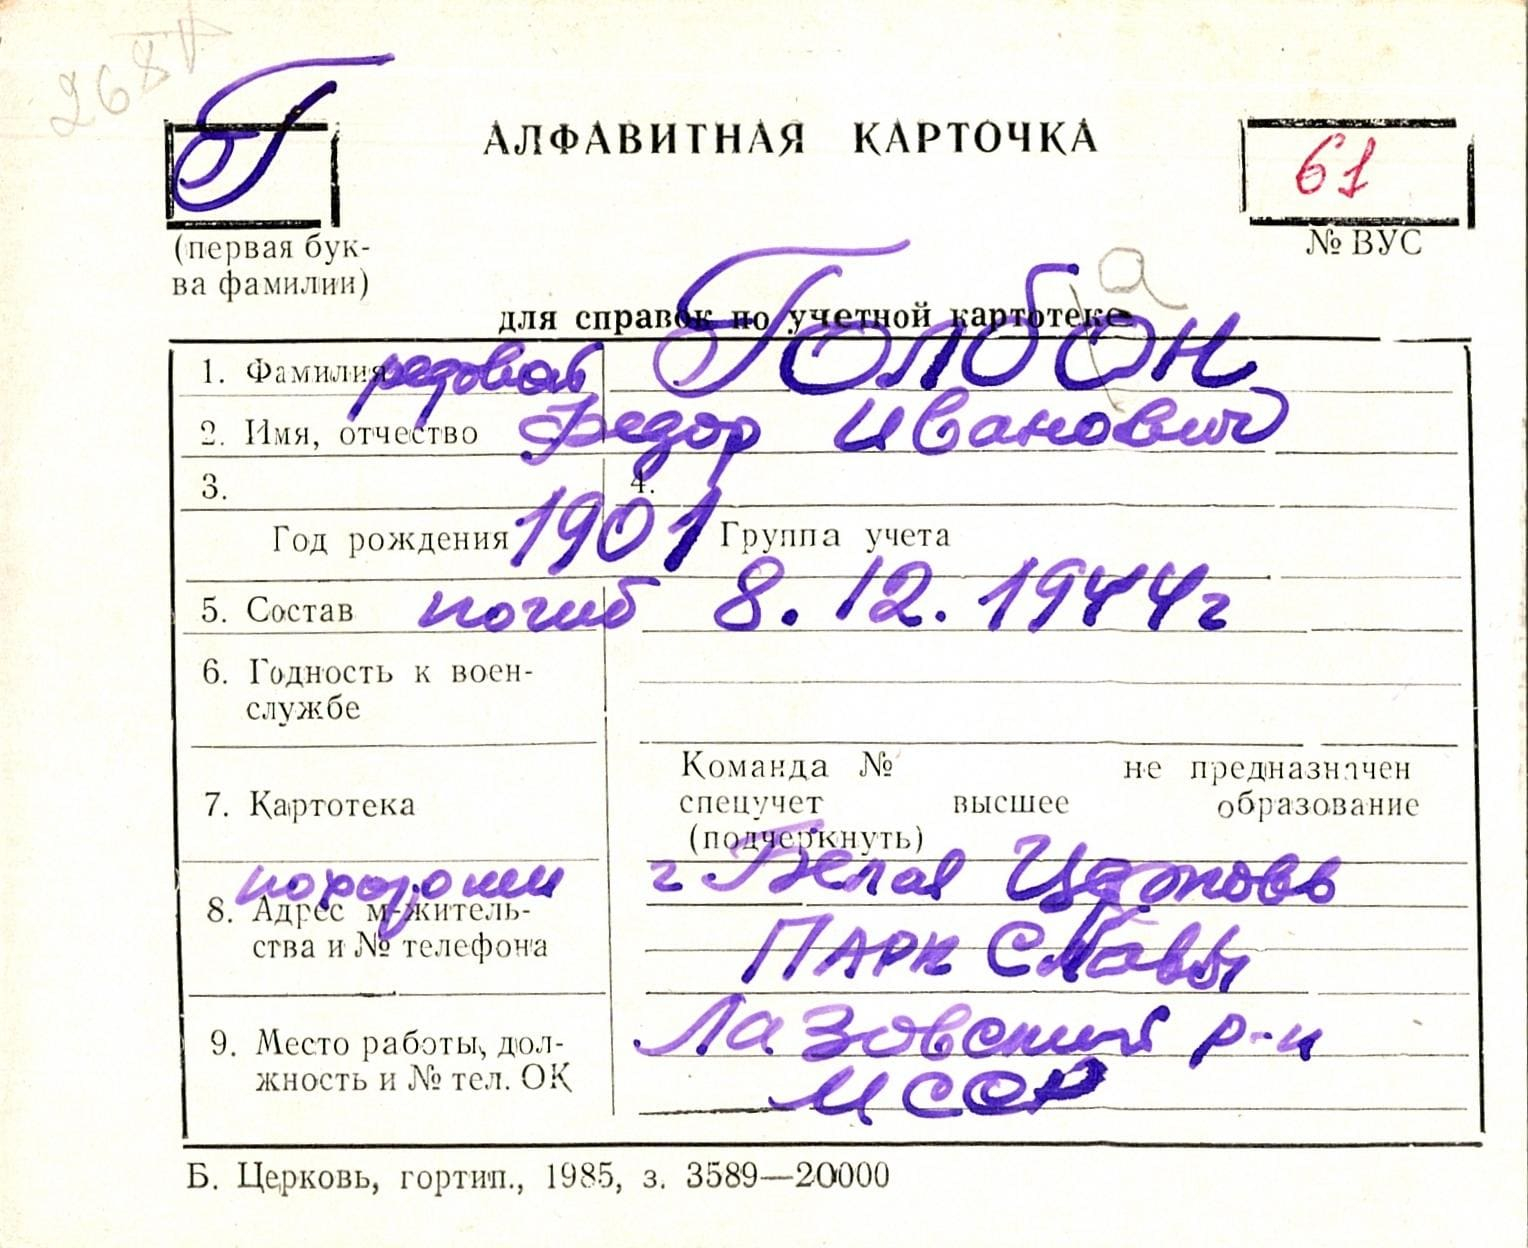 268
Г
АЛФАВИТНАЯ КАРТОЧКА
61
(первая бук-
ва фамилии)
№ ВУС
а
для справок по учетной картотеке
1. Фамилия рядовой Голбон
2. Имя, отчество Федор Иванович
3. 4.
Год рождения 1901 Группа учета
5. Состав погиб 8.12.1944г
6. Годность к воен-
службе
Команда № не предназначен
7. Картотека спецучет высшее образование
(подчеркнуть)
похоронен г Белая Церковь
8. Адрес м-житель-
ства и № телефона Парк Славы
9. Место работы, дол- Лазовский р-н
жность и № тел. ОК МССР
Б. Церковь, гортип., 1985, з. 3589—20000